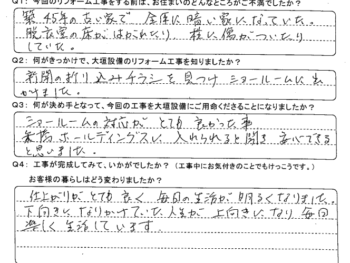 Q1：今回のリフォーム工事をする前は、お住まいのどんなところがご不満でしたか？
築45年の古い家で 全体に暗い家になっていた。
脱衣室の床がはがれたり、柱に傷がついたり
していた。
Q2：何がきっかけで、大垣設備のリフォーム工事を知りましたか？
新聞の折り込みチラシを見つけ ショールームに出
かけました。
Q3：何が決め手となって、今回の工事を大垣設備にご用命くださることになりましたか？
ショールームの対応がとても良かった事
ホールディングスに入れられると聞き 安心できる
と思いました。
Q4：工事が完成してみて、いかがでしたか？（工事中にお気付きのことでもけっこうです。）
お客様の暮らしはどう変わりましたか？
仕上がりがとても良く 毎日の生活が明るくなりました。
下向きになりかけていた人生が上向きになり 毎日
楽しく生活しています。